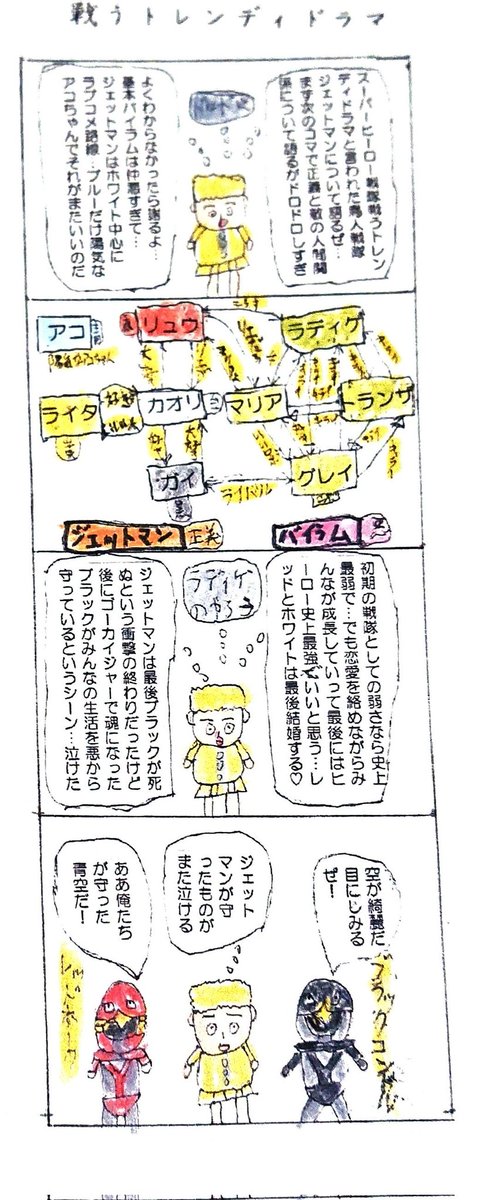 戦うトレンディドラマ
スーパーヒーロー戦隊戦うトレン
ディドラマと言われた鳥人戦隊
ジェットマンについて語るぜ…
まず次のコマで正義と敵の人間関
係について語るがドロドロしすぎ
よくわからなかったら謝るよ…
基本バイラムは仲悪すぎて…
ジェットマンはホワイト中心に
ラブコメ路線…ブルーだけ陽気な
アコちゃんでそれがまたいいのだ
アコ
リュウ
ラディゲ
ライタ
好き
カオリ
マリア
トランザ
ガイ
ライバル
グレイ
ジェットマン
正義
バイラム
悪
初期の戦隊としての弱さなら史上
最弱で…でも恋愛を絡めながらみ
んなが成長していって最後にはヒ
ーロー史上最強でいいと思う…レ
ッドとホワイトは最後結婚する♡
ラディゲ
のやろう
ジェットマンは最後ブラックが死
ぬという衝撃の終わりだったけど
後にゴーカイジャーで魂になった
ブラックがみんなの生活を悪から
守っているというシーン…泣けた
空が綺麗だ
目にじみる
ぜ!
ブラックコンドル
ジェット
マンが守
ったものが
また泣ける
ああ俺たち
が守った
青空だ!
レッドホーク